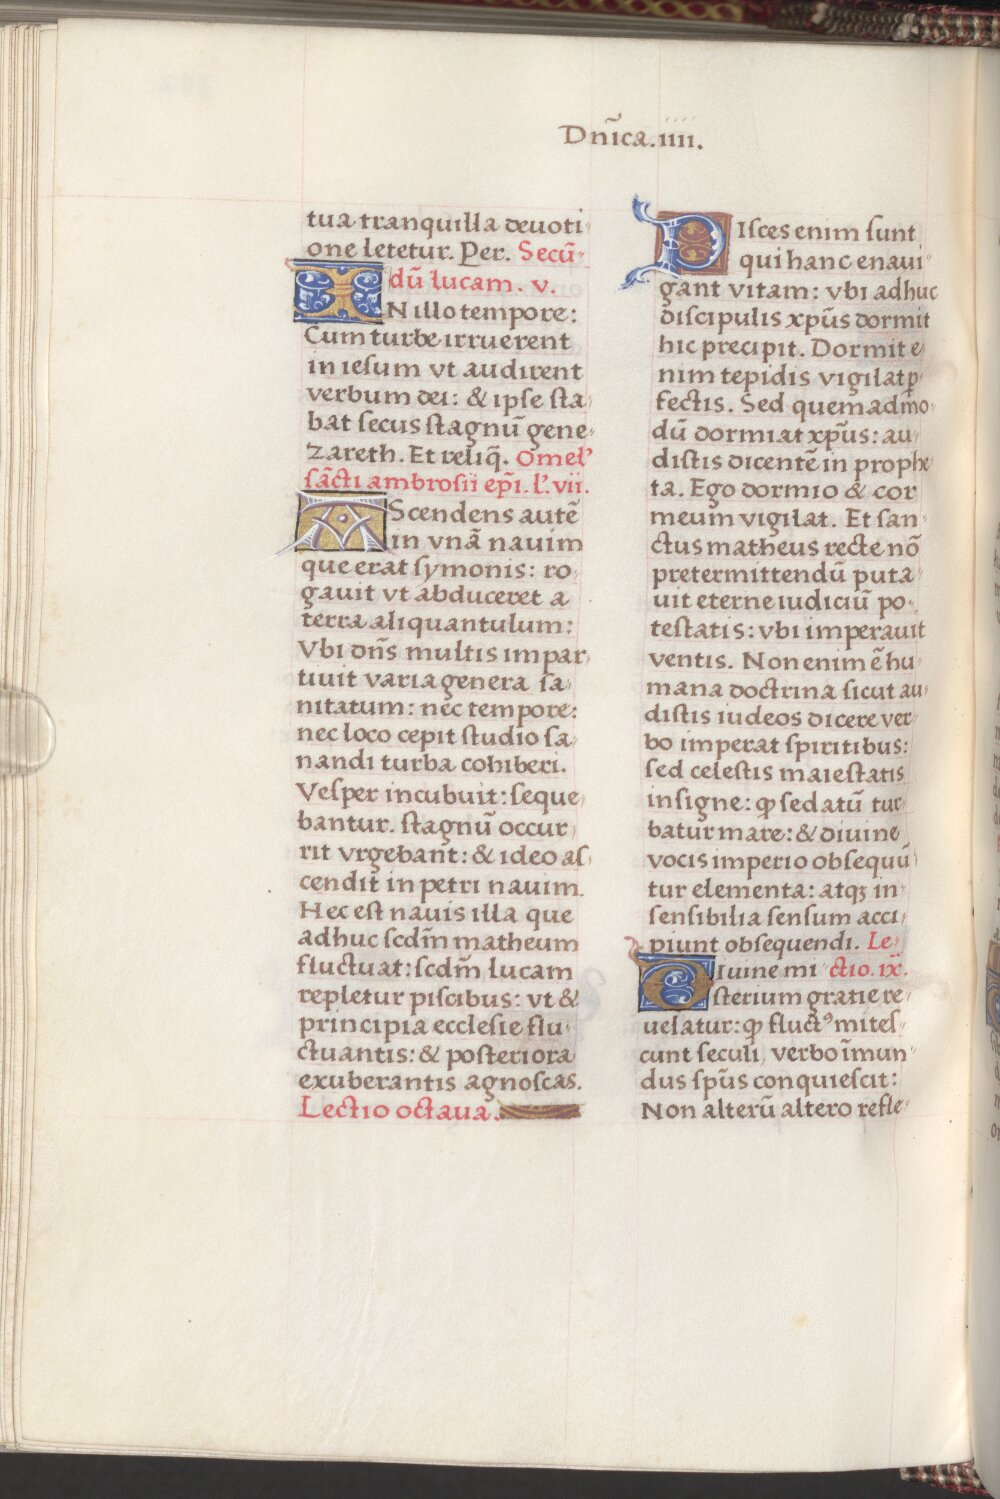 Dn̄ica.iiii.
tua tranquilla deuoti
one letetur. Per. Secū
dū lucam. v.
IN illo tempore:
Cum turbe irruerent
in iesum vt audirent
verbum dei: & ipse sta
bat secus stagnū gene
zareth. Et reliq̄. Omel'
sācti ambrosii ep̄i. l'. vii.
AScendens autē
in vnā nauim
que erat symonis: ro
gauit vt abduceret a
terra aliquantulum:
Vbi dn̄s multis impar
tiuit varia genera sa
nitatum: nec tempore:
nec loco cepit studio sa
nandi turba cohiberi.
Vesper incubuit: seque
bantur. stagnū occur
rit vrgebant: & ideo as
cendit in petri nauim.
Hec est nauis illa que
adhuc scdm̄ matheum
fluctuat: scdm̄ lucam
repletur piscibus: vt &
principia ecclesie flu
ctuantis: & posteriora
exuberantis agnoscas.
Lectio octaua.
PIsces enim sunt
qui hanc enaui
gant vitam: vbi adhuc
discipulis xp̄us dormit
hic precipit. Dormit e
nim tepidis vigilat ꝑ
fectis. Sed quemadmo
dū dormiat xp̄us: au
distis dicentē in prophe
ta. Ego dormio & cor
meum vigilat. Et san
ctus matheus recte nō
pretermittendū puta
uit eterne iudiciū po
testatis: vbi imperauit
ventis. Non enim ē hu
mana doctrina sicut au
distis iudeos dicere ver
bo imperat spiritibus:
sed celestis maiestatis
insigne: ꝙ sedatū tur
batur mare: & diuine
vocis imperio obsequū
tur elementa: atqꝫ in
sensibilia sensum acci
piunt obsequendi. Le
DIuine mi ctio. ix.
sterium gratie re
uelatur: ꝙ fluctꝰ mites
cunt seculi, verbo īmun
dus sp̄us conquiescit:
Non alterū altero refle